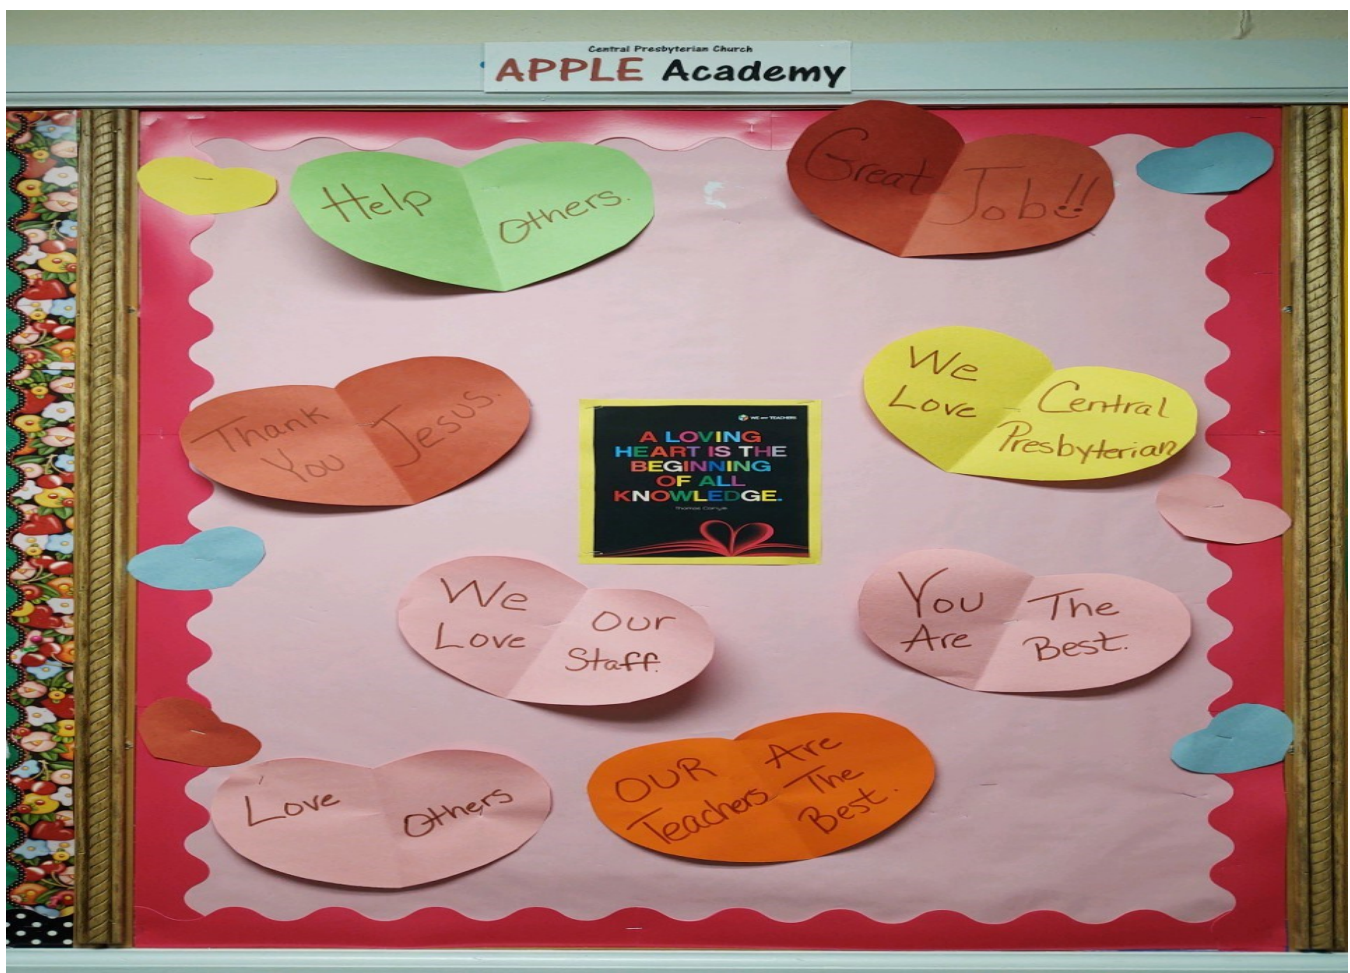 Central Presbyterian Church
APPLE Academy
Help Others.
Great Job!!
Thank Jesus.
You
We
Love Central
Presbyterian
WE ARE TEACHERS
A LOVING
HEART IS THE
BEGINNING
OF ALL
KNOWLEDGE.
Thomas Carlyle
We Our
Love Staff.
You The
Are Best.
Love Others
OUR Are
Teachers The
Best.